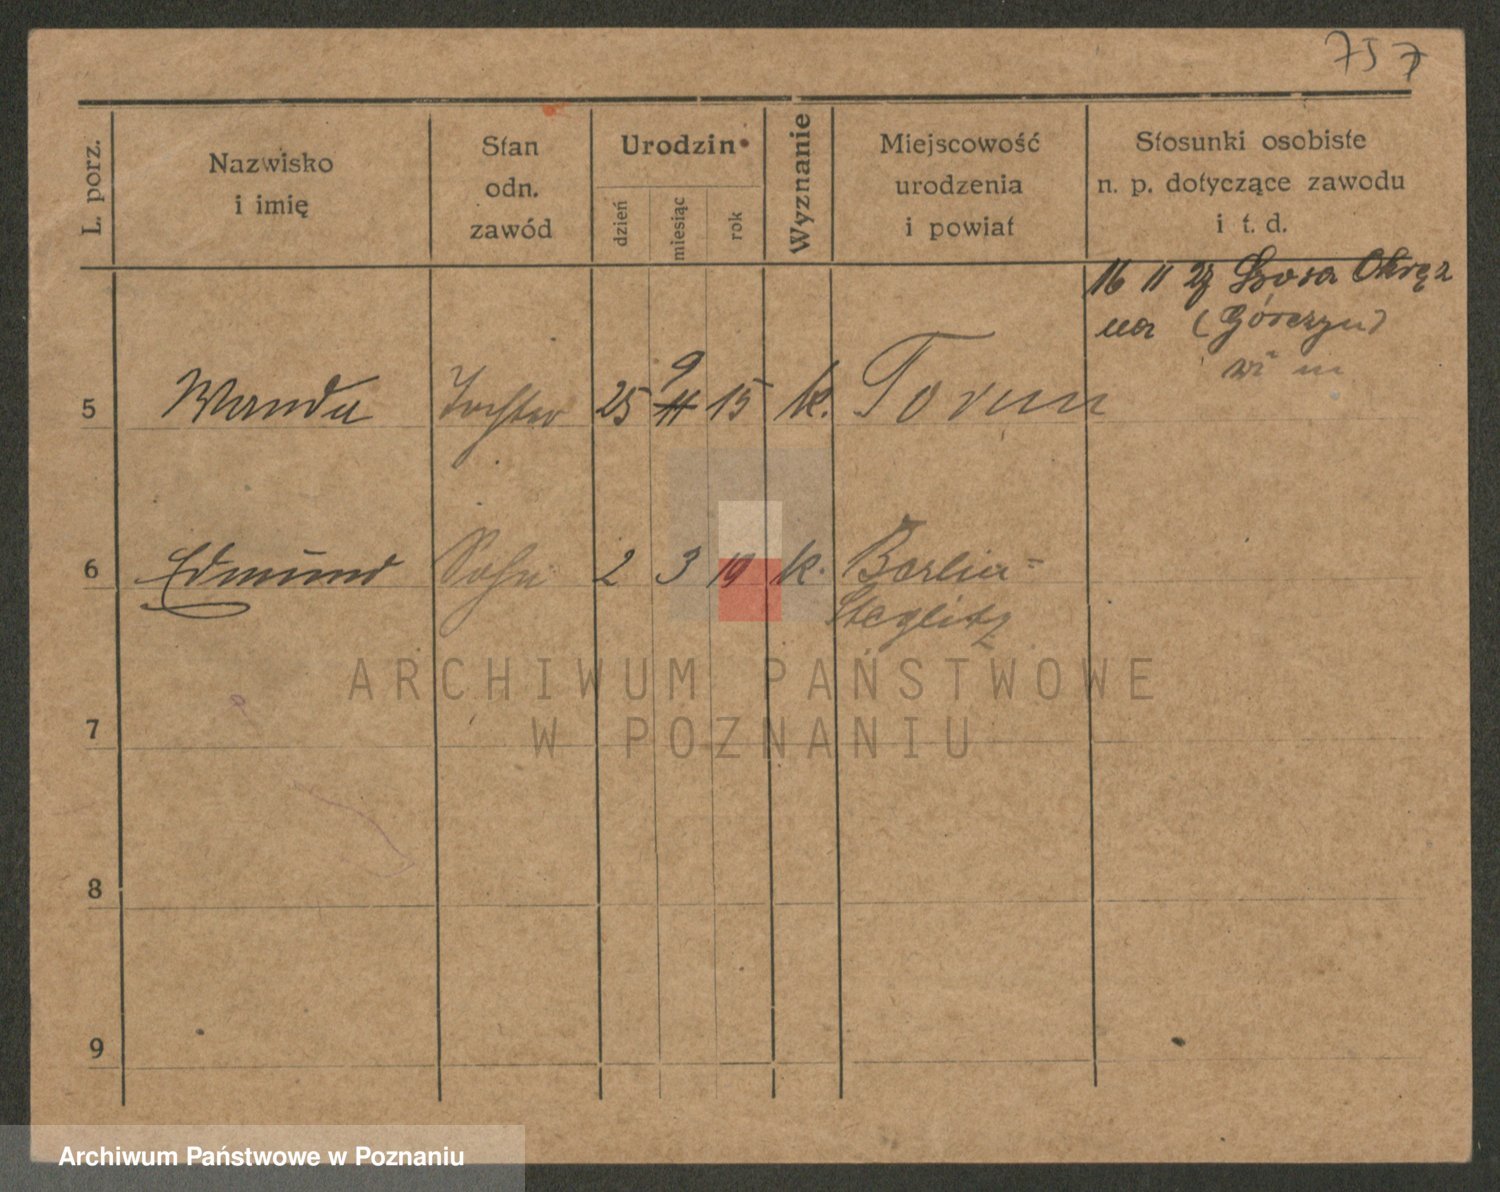 757
L. porz.
Nazwisko
i imię
Stan
odn.
zawód
Urodzin
dzień
miesiąc
rok
Wyznanie
Miejscowość
urodzenia
i powiat
Stosunki osobiste
n. p. dotyczące zawodu
i t. d.
16 11 27 Szosa Okręż
na (Górczyn)
5 Wanda Tochter 25 9 11 15 k. Torun
6 Edmund Sohn 2 3 19 k. Berlin-
Steglitz
ARCHIWUM PAŃSTWOWE
W POZNANIU
7
8
9
Archiwum Państwowe w Poznaniu